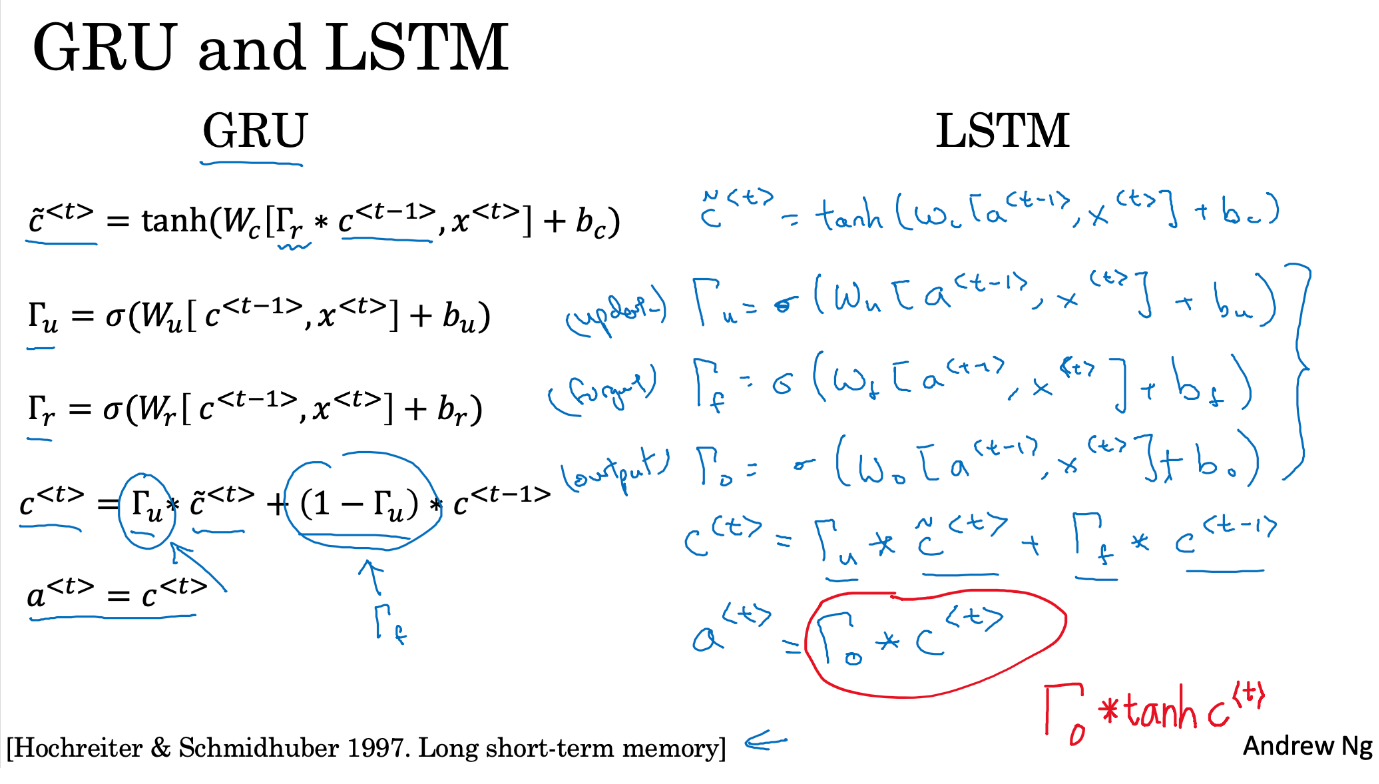 GRU and LSTM
GRU
c̃<t> = tanh(Wc[Γr * c<t−1>, x<t>] + bc)
Γu = σ(Wu[ c<t−1>, x<t>] + bu)
Γr = σ(Wr[ c<t−1>, x<t>] + br)
c<t> = Γu * c̃<t> + (1 − Γu) * c<t−1>
a<t> = c<t>
Γf
LSTM
c̃<t> = tanh(Wc[a<t-1>, x<t>] + bc)
(update) Γu = σ(Wu[a<t-1>, x<t>] + bu)
(forget) Γf = σ(Wf[a<t-1>, x<t>] + bf)
(output) Γo = σ(Wo[a<t-1>, x<t>] + bo)
c<t> = Γu * c̃<t> + Γf * c<t-1>
a<t> = Γo * c<t>
Γo *tanh c<t>
[Hochreiter & Schmidhuber 1997. Long short-term memory] ←
Andrew Ng